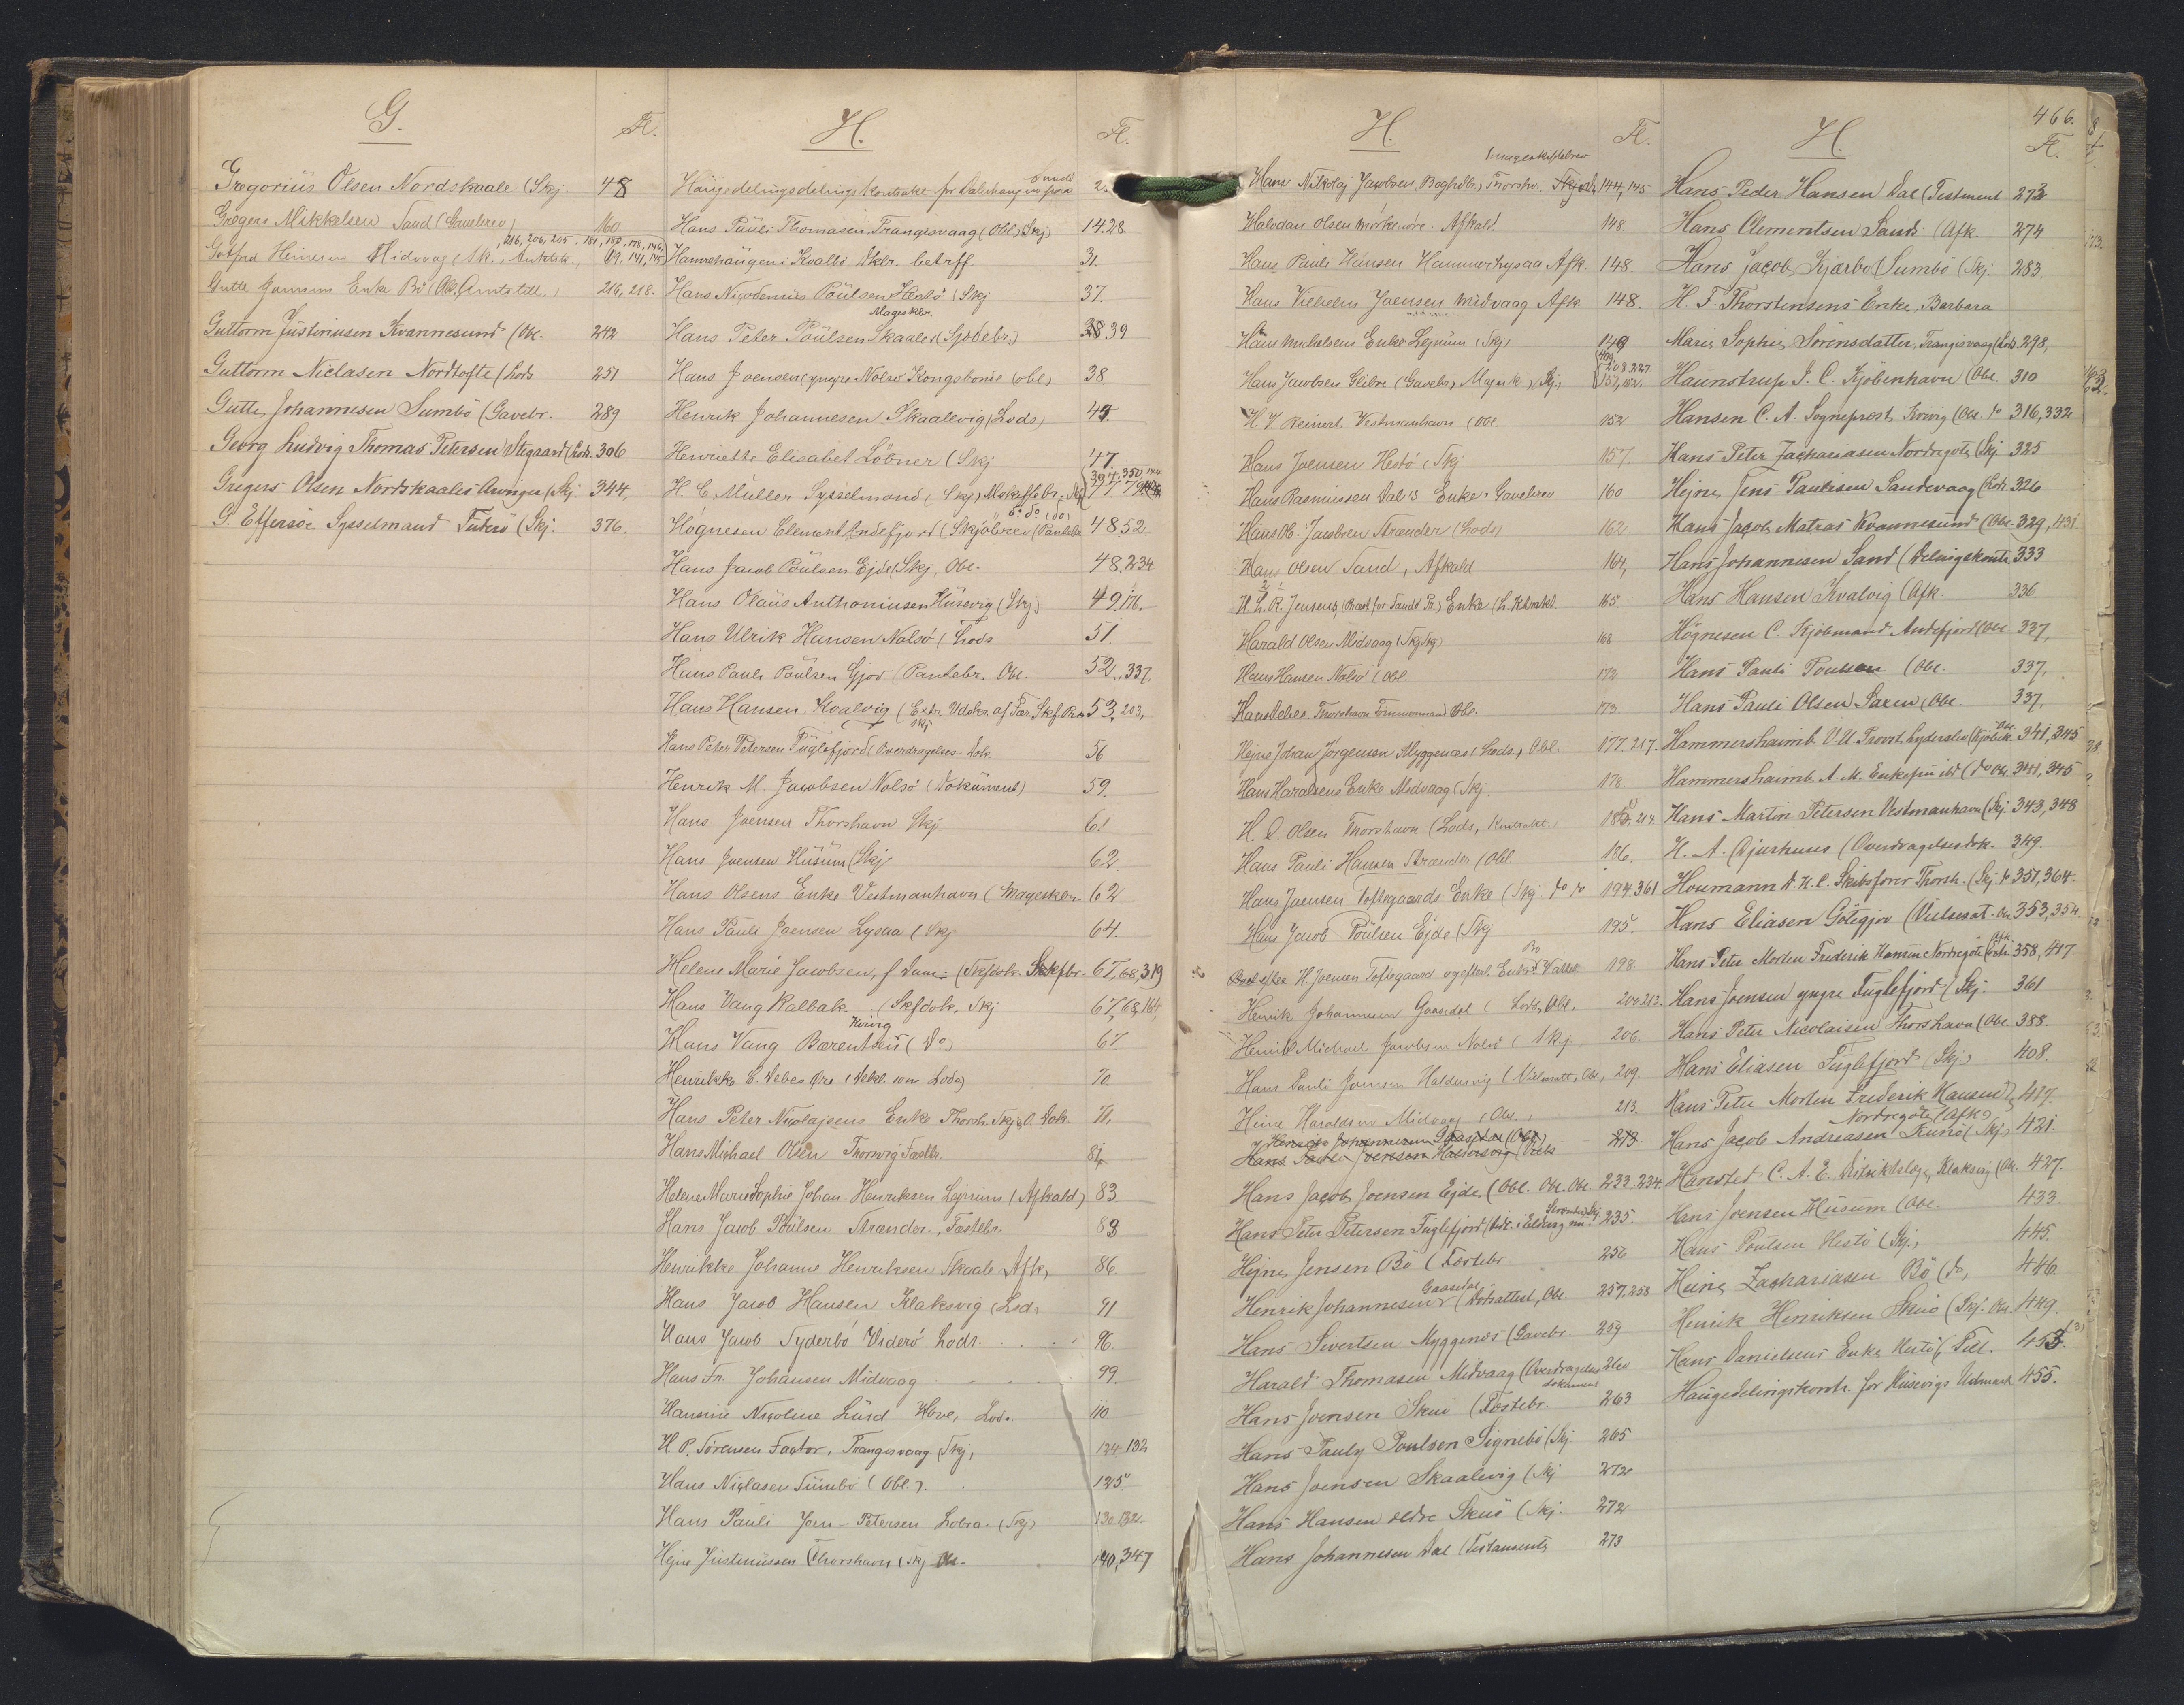 G.
Fl.
Gregorius Olsen Nordskaale (Skj. 48
Gregers Mikkelsen Sand (Gavebrev) 160
216, 206, 205, 181, 180, 178, 146,
Gutte Joensens Enke Bö (Obl. 216, 218.
Guttorm Justinusen Kvannesund (Obl. 242
Guttorm Niclasen Nordtofte (Lods 251
Gutte Johannesen Sumbö (Gavebr. 289
Georg Ludvig Thomas Petersen Stegaard (Lods. 306
Gregers Olsen Nordskaales Arvinger (Skj. 344,
G. Effersöe Sysselmand Tuterö (Skj. 376.
H.
Fl.
Hans Pauli Thomasen Trangisvaag (Obl) (Skj) 14.28
Hamrehaugen i Kvalbö Dklr. betrff. 31.
Hans Nicodemus Poülsen Hestö (Skj 37.
Mageskbr.
Hans Peter Poülsen Skaale (Sjödebr.) 38 39
Hans Joensen yngre Nolsö Kongsbonde (obl) 38
Henrik Johannesen Skaalevig (Lods) 45.
Henriette Elisabet Löbner (Skj 47
H. C. Müller Sysselmand (Skj) Makeskbr.
Högnesen Clement Andefjord (Skjöbrev (Pantebr 48 52
Hans Jacob Poülsen Ejde (Skj, Obl. 48, 234
Hans Olaüs Anthoniusen Hüsevig (Skj) 49, 176.
Hans Ulrik Hansen Nolsö (Lods 51
Hans Pauli Poülsen Gjov (Pantebr. Obl. 52, 337.
Hans Hansen Kvalvig (Extr. Udskr. af Fær. Skf. Pr. 53, 203,
Skj
Hans Peter Petersen Füglefjord (Overdragelses-Dok 56
Henrik M. Jacobsen Nolsö (Dokument) 59.
Hans Joensen Thorshavn Skj. 61
Hans Joensen Hüsüm (Skj 62
Hans Olsens Enke Vestmanhavn (Mageskbr. 62
Hans Pauli Joensen Lysaa (Skj 64.
Helene Marie Jacobsen, f. Dam: (Skfdok. Skfbr. 67, 68, 319
Hans Vang Kalbak. (Skfdok, Skj 67, 68, 164,
Kvivig
Hans Vang Bærentsen (Do) 67
Henrikke C. Debes Öre (Dekl. om Lods) 70.
Hans Peter Nicolajsens Enke Thorsh. Skj. O. Dok. 71.
Hans Michael Olsen Thorsvig Fæstbr. 81,
Helene Marie Sophie Johan Henriksen Lejnum (Afkald) 83
Hans Jacob Poülsen Strænder, Fæstebr. 83
Henrikke Johanne Henriksen Skaale Afk, 86
Hans Jacob Hansen Klaksvig (Lods 91
Hans Jacob Tyderbö Viderö Lods. 96.
Hans Fr. Johansen Midvaag 99
Hansine Nicoline Lüid Hove, Lods. 110
H. P. Sörensen Factor, Trangisvaag (Skj, 124, 132
Hans Niclasen Sümbö (Obl). 125.
Hans Pauli Joen-Petersen Lobra. (Skj) 130, 132
Hejne Justinussen Thorshavn (Skj Obl. 140, 347
H.
Fl.
Mageskiftebrev
Hans Nikolaj Jacobsen, Boghdlr, Thorshv. Skjød, 144, 145
Halvdan Olsen Mörkenöre. Afkald. 148.
Hans Pauli Hansen Hammerbysaa Afk. 148
Hans Vilhelm Joensen Midvaag Afk. 148.
Hans Michelsens Enke Lejnum (Skj) 149
Hans Jacobsen Glibre (Gavebr, Magesk., Skj, 151, 152.
H. J. Reinert Vestmanhavn (Obl. 152
Hans Joensen Hestö (Skj 157.
Hans Rasmussen Dal's Enke. Gavebrev 160
Hans Ob. Jacobsen Strænder (Lods) 162
Hans Olsen Sand, Afkald 164,
H. L. R. Jensens, (Præst for Sandö Pr.) Enke (L. Kontrakt. 165
Harald Olsen Midvaag (Skj. Skj) 168
Hans Hansen Nolsö (obl. 172
Hans Debes Thorshavn Tömmermand Obl. 173
Hejne Johan Jörgensen Myggenæs (Lods., Obl. 177. 217.
Hans Haraldsens Enke Midvaag (Skj. 178.
H. D. Olsen Thorshavn (Lods, Kontrakt.) 185, 214.
Hans Pauli Hansen Strænder (Obl 186.
Hans Joensen Toftegaards Enke (Skj do do 194. 361
Hans Jacob Poülsen Ejde (Skj 195.
Bo
H. Joensen Toftegaard og efterl. Enke 198
Henrik Johannesen Gaasedal (Lods, Obl. 200, 213.
Henrik Michael Jacobsen Nolsö (Skj 206.
Hans Pauli Joensen Haldersvig (Vielsesatt. Obl, 209.
Heine Haraldsen Midvaag (Obl. 213.
Henrik Johannesen Gaasedal (Obl)
Hans Pauli Joensen Haldersvig (Viels 213
Hans Jacob Joensen Ejde (Obl. Obl. Obl. 233. 234.
Hans Peter Petersen Fuglefjord 235.
Hejne Jensen Bö (Föstebr. 256
Gaasedal
Henrik Johannesen (Döbsattest, Obl 257, 258
Hans Sivertsen Myggenæs (Gavebr. 259
Harald Thomasen Midvaag (Overdragelses 260
dokument
Hans Joensen Skuö (Föstebr. 263
Hans Pauly Poulsen Signebö (Skj 265
Hans Joensen Skaalevig (Skj 272
Hans Hansen ældre Skuö (Skj. 272
Hans Johannesen Dal (Testament, 273
466.
H.
Fl.
Hans Peder Hansen Dal (Testment 273
Hans Clementsen Sand (Afk. 274
Hans Jacob Kjærbo (Sumbö (Skj. 283.
H. F. Thorstensens Enke, Barbara
Marie Sophie Sörensdatter, Trangisvaag (Lods. 298,
Haunstrup J. C. Kjöbenhavn (Obl. 310
Hansen C. A. Sognepræst, Kvivig (Obl. do 316, 332
Hans Peter Zachariasen Nordregöte (Skj 325
Hejne Jens Paulisen Sandevaag (Lods. 326
Hans Jacob Matras Kvannesund (Obl. 329, 431
Hans Johannesen Sand (Delingskontr. 333
Hans Hansen Kvalvig (Afk. 336
Högnesen C. Kjöbmand Andefjord (Obl. 337,
Hans Pauli Poulsen (Obl. 337,
Hans Pauli Olsen Saxen (Obl. 337,
Hammershaimb V. U. Provst, Lyderslev 341, 345
Hammershaimb A. M. Enkefru ibd (do Obl. 341, 345
Hans Martin Petersen Vestmanhavn (Skj 343, 348
H. A. Djurhuus (Overdragelsesdok. 349.
Houmann D. H. C. Skibsförer Thorsh. (Skj. do 351, 364.
Hans Eliasen Götegjov (Vielsesat. Obl 353, 354
Hans Peter Morten Frederik Hansen Nordregöte 358, 417
Hans Joensen yngre Fuglefjord (Skj. 361
Hans Peter Nicolaisen Thorshavn (Obl. 388.
Hans Eliasen Fuglefjord (Skj.) 408.
Hans Peter Morten Frederik Hansen 417.
Nordregöte (Afk)
Hans Jacob Andreasen Kunö (Skj) 421.
Hanstet C. A. E. Distriktslæge, Klaksvig (Obl. 427.
Hans Joensen Husum (Obl. 433
Hans Poulsen Hestö (Skj., 445.
Heine Zachariasen Bö (do, 446
Henrik Henriksen Skuö (Skj. Obl 449.
Hans Danielsens Enke Hestö (Till. 455.
Haugedelingskontr. for Husevigs Udmark 455.